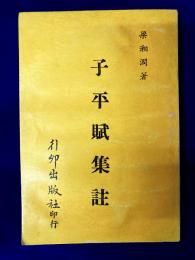 梁湘潤著
子平賦集註
行卯出版社印行